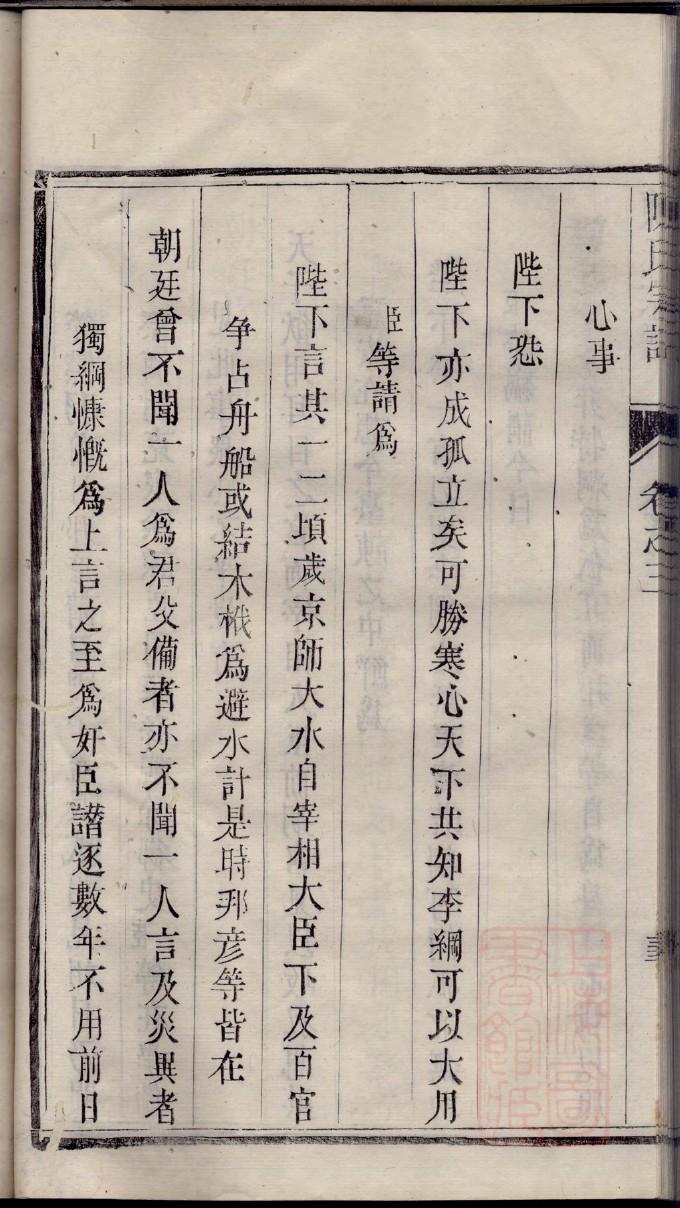 陳氏宗譜
卷之三
心事
陛下恐
陛下亦成孤立矣可勝寒心天下共知李綱可以大用
臣等請爲
陛下言其一二頃歲京師大水自宰相大臣下及百官
争占舟船或結木栰爲避水計是時邦彦等皆在
朝廷曾不聞一人爲君父備者亦不聞一人言及災異者
獨綱慷慨爲上言之至爲奸臣譖逐數年不用前日